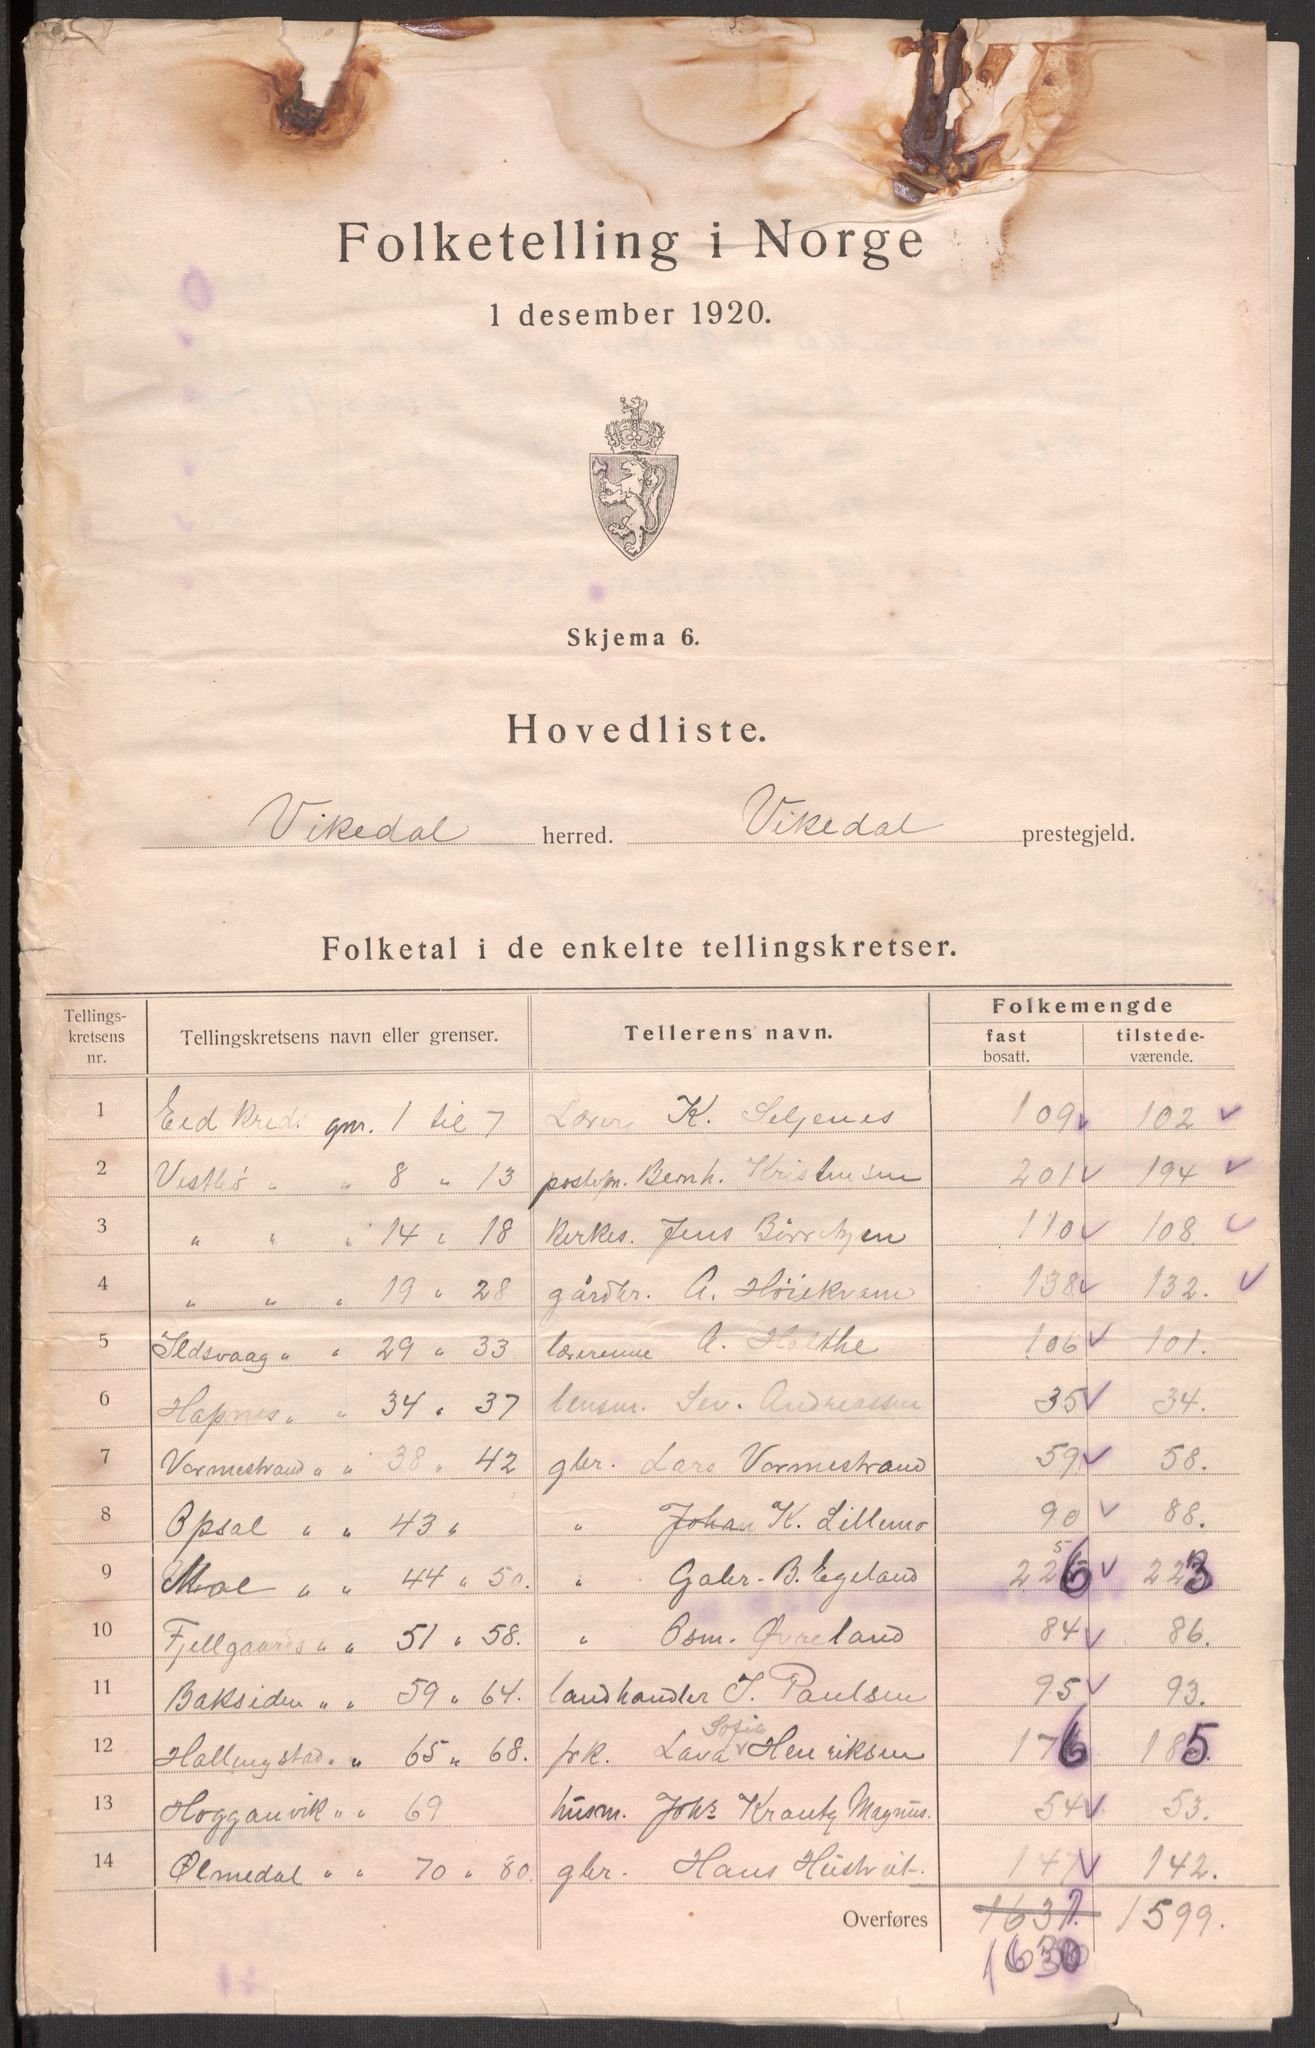 Folketelling i Norge
1 desember 1920.
Skjema 6.
Hovedliste.
Vikedal herred. Vikedal prestegjeld.
Folketal i de enkelte tellingskretser.
Tellings-kretsens nr. Tellingskretsens navn eller grenser. Tellerens navn. Folkemengde
fast bosatt. tilstede-værende.
1 Eid kreds gnr. 1 til 7 Lærer K. Seljenes 109 102
2 Vestbø " " 8 " 13 postepn. Bernh. Kristensen 201 194
3 " " " 14 " 18 kirkes. Jens 110 108.
4 " " " 19 " 28 gårdbr. A. Høiekvam 138 132.
5 Ildsvaag " " 29 " 33 lærerinne A. Holthe 106 101.
6 Hapnes " " 34 " 37 lensm. Sev. Andreassen 35 34.
7 Vormestrand " " 38 " 42 gbr. Lars Vormestrand 59 58.
8 Opsal " " 43 " " Johan K. Lillemo 90 88.
9 " " 44 " 50. " Gabr. B. Egeland 226 223
10 Fjellgaards " " 51 " 58. " Osm. Øvreland 84 86.
11 Baksiden " " 59 " 64. landhandler J. Paulsen 95 93.
12 Hallingstad " " 65 " 68. frk. Lava Sofie Henriksen 176 185.
13 Hogganvik " " 69 husm. Johs Krantz Magnus. 54 53.
14 Ølmedal " " 70 " 80. gbr. Hans Hustvet. 147 142.
Overføres 1637. 1599.
1630